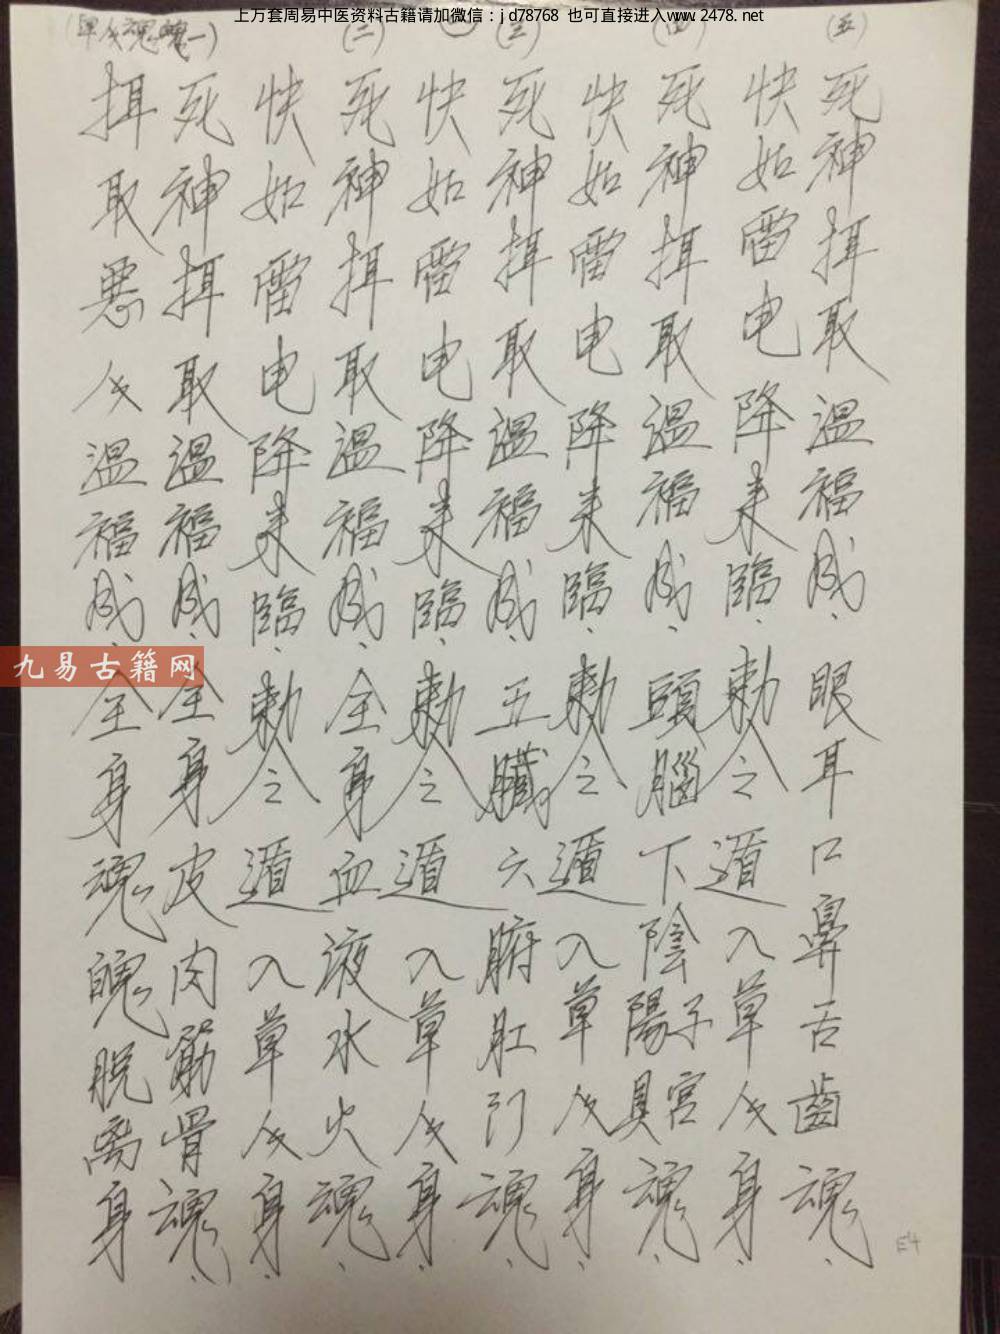 上万套周易中医资料古籍请加微信：jd78768 也可直接进入www.2478.net
挕取惡人溫福威、全身魂魄脱离身
死神挕取溫福威、全身皮肉筋骨魂、
快如雷电降来臨、敕令遁入草人身、
(二)
死神挕取溫福威、全身血液水火魂、
快如雷电降来臨、敕令遁入草人身、
(三)
死神挕取溫福威、五臟六腑肛门魂、
快如雷电降来臨、敕令遁入草人身、
(四)
死神挕取溫福威、頭腦下陰陽子具宫魂、
快如雷电降来臨、敕令遁入草人身、
(五)
死神挕取溫福威、眼耳口鼻舌齒魂、
九易古籍网